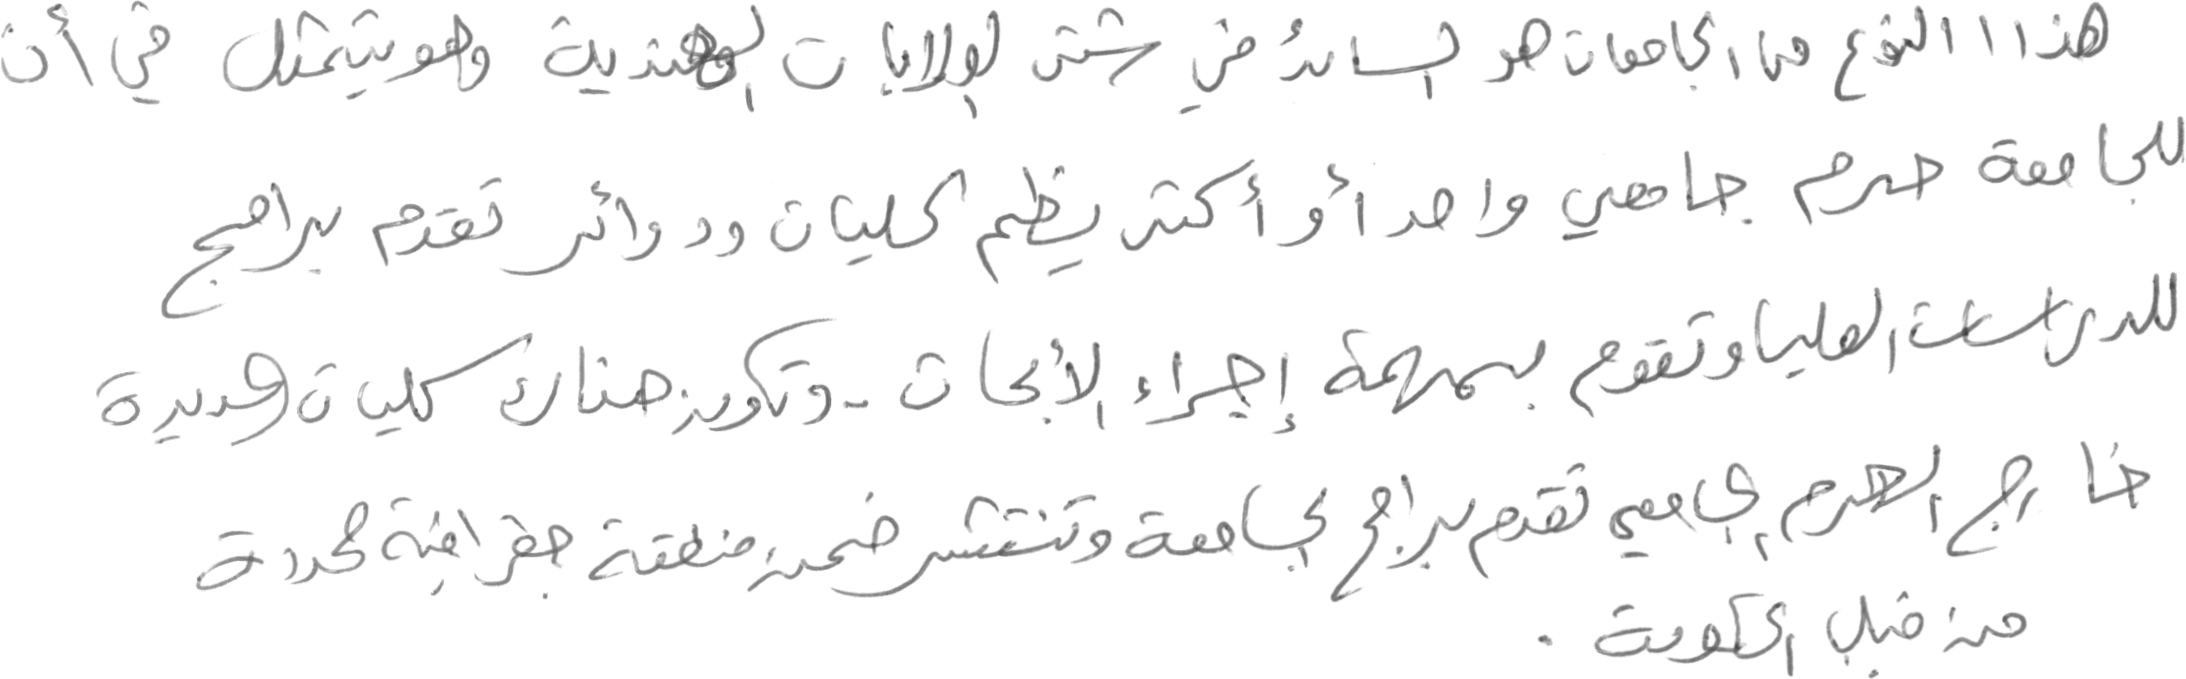 هذا النوع من الجامعات هو السائد في شتى الولايات الهندية وهو يتمثل في أن
للجامعة حرم جامعي واحد أو أكثر يظم كليات ودوائر تقدم برامج
للدراسات العليا وتقوم بمهمة إجراء الأبحاث - وتكون هناك كليات عديدة
خارج الحرم الجامعي تقدم برامج الجامعة وتنتشر ضمن منطقة جغرافية محددة
من قبل الحكومة .